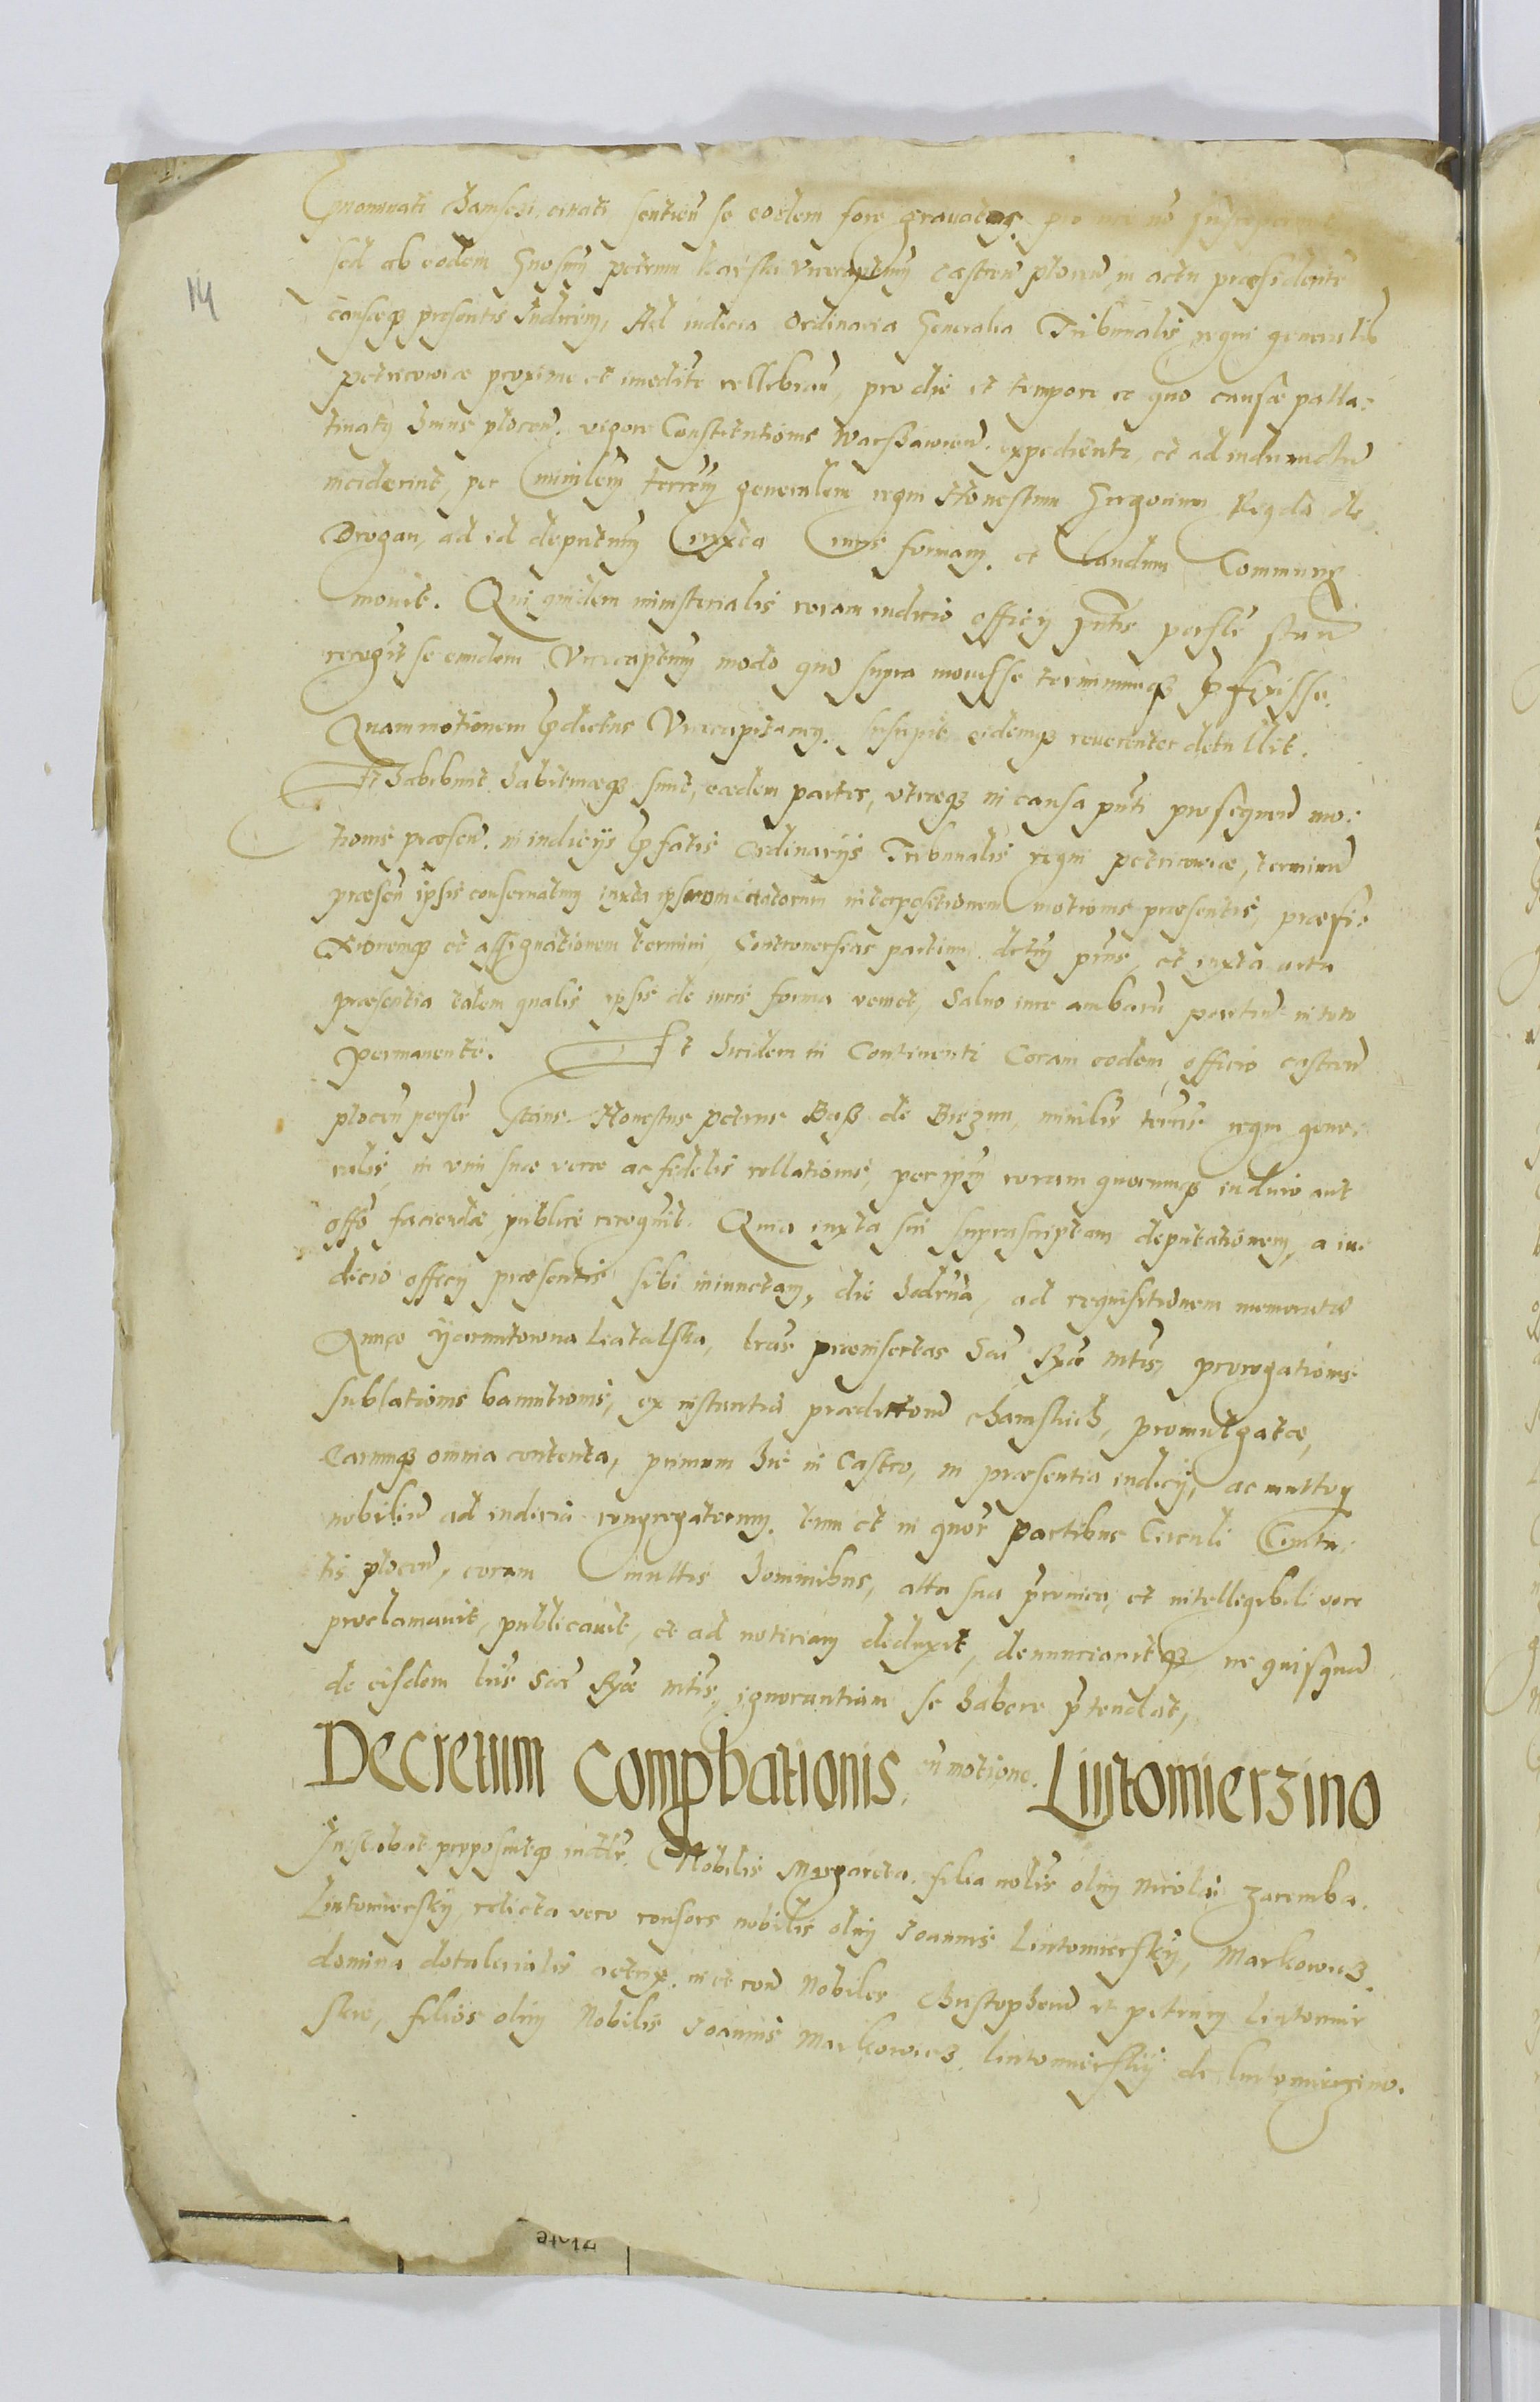 14
pnominati Chamsczi, citati sentien se eodem fore gravatos, pro
sed ab eodem Gnosum petrum Karski Vicecaptum Castren plocen, in actu præsidente
causæq presentis Iudicem, Ad iudicia ordinaria Generalia Tribunalis regni generalis
petricoviæ proxime et imedite cellebran, pro die et tempore eo quo causæ palla:
tinatus huius plocen. vigore Constitutionis Warshawien. expedienti, et ad
inciderint, per minilem terrem generalem regni Honestum Gregorium de
Drogan, ad id deputtum iuxta iuris formam. et laudum Commune
movit. Qui quidem ministerialis coram iudicio officij pntis persle stan
recognit se eundem Vicecaptum modo quo supra movisse terminumq pfixisse.
Quam motionem pdictus Vicecapitaneus. suscepit eidemq reverenter detullit.
Et habebunt habituræq sunt, eædem partes, utræq in causa pnti prosequen mo:
tionis præsen. in iudicijs pfatis Ordinarijs Tribunalis regni petricoviæ, terminum
præsen ipsis conservatum iuxta interpositionem motionis præsentis, præfi:
xionemq et assignationem termini, Controversias partium. et iuxta acta
præsentia talem qualis ipsis de iuris forma venit, Salvo iure ambarum partium in toto
permanente. Et Ibidem in Continenti Coram eodem officio castren
plocen persle stans Honestus petrus Baß de Biezun, minilis terris regni gene:
ralis, in vim suæ veræ ac fidelis rellationis, per ipsum coram quocunq iudicio aut
offo faciendæ, publice recognit. Quia iuxta sui suprascriptam deputationem, a iu:
dicio officij præsentis sibi iniunctam, die hodierna, ad requisitionem memoratæ
Annæ Latalska, lras præinsertas Sacræ Rgæ Mtis, prorogationis
sublationis bannitionis, ex instantia prædictorum Chamskich, promulgatæ,
Earumq omnia contenta, primum hic in Castro, in præsentia iudicij, ac multorum
nobilium ad iudicia congregatorum. tum et in quor partibus Circuli
tis plocen, coram multis hominibus, alta sua et intelligibili voce
proclamavit, publicavit, et ad notitiam deduxit, denunciavitq, ne quisquam
de eisdem lris Sacræ Rgæ Mtis, ignorantiam se habere ptendat,
Decretum Compbationis, cu motione. Liutomierzino
Instabat proposuitq Nobilis Margareta. filia nolis olim Nicolai Zaremba.
Liutomierskÿ, relicta vero consors nobilis olim Joannis Liutomierskÿ, Markowicz
domina dotalicialis actrix. in et con Nobiles Christopherum et petrum Liutomir
skie, filios olim Nobilis Joannis Markowicz Liutomierskÿ de Liutomierzino.
Złote